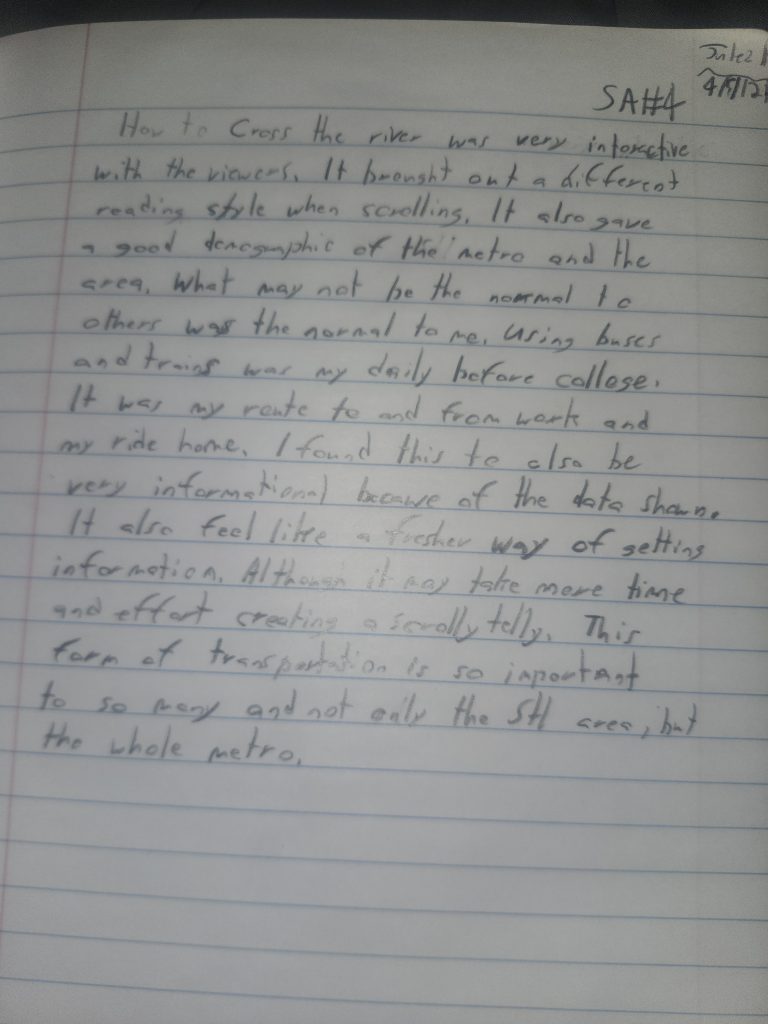 SA#4
How to Cross the river was very interactive
with the viewers. It brought out a different
reading style when scrolling. It also gave
a good demographic of the metro and the
area. What may not be the normal to
others was the normal to me. Using buses
and trains was my daily before college.
It was my route to and from work and
my ride home. I found this to also be
very informational because of the data shown.
It also feel like a fresher way of getting
information. Although it may take more time
and effort creating a scrolly telly. This
form of transportation is so important
to so many and not only the area, but
the whole metro.